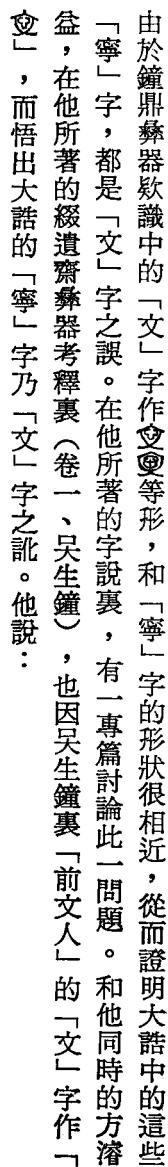 由於鐘鼎彝器欵識中的「文」字作等形，和「寧」字的形狀很相近，從而證明大誥中的這些
「寧」字，都是「文」字之誤。在他所著的字說裏，有一專篇討論此一問題。和他同時的方濬
益，在他所著的綴遺齋彝器考釋裏（卷一、吳生鐘），也因吳生鐘裏「前文人」的「文」字作「
」，而悟出大誥的「寧」字乃「文」字之訛。他說：